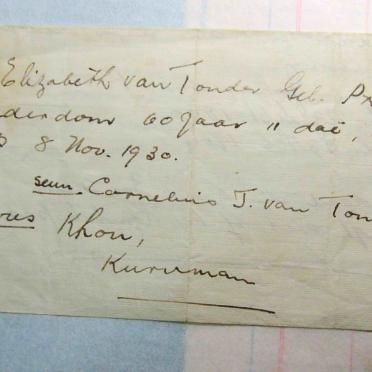 Elizabeth van Tonder Geb. Pr
derdom 60 Jaar 11 daë,
8 Nov. 1930.
seun. Cornelius J. van Ton
res Khon,
Kuruman